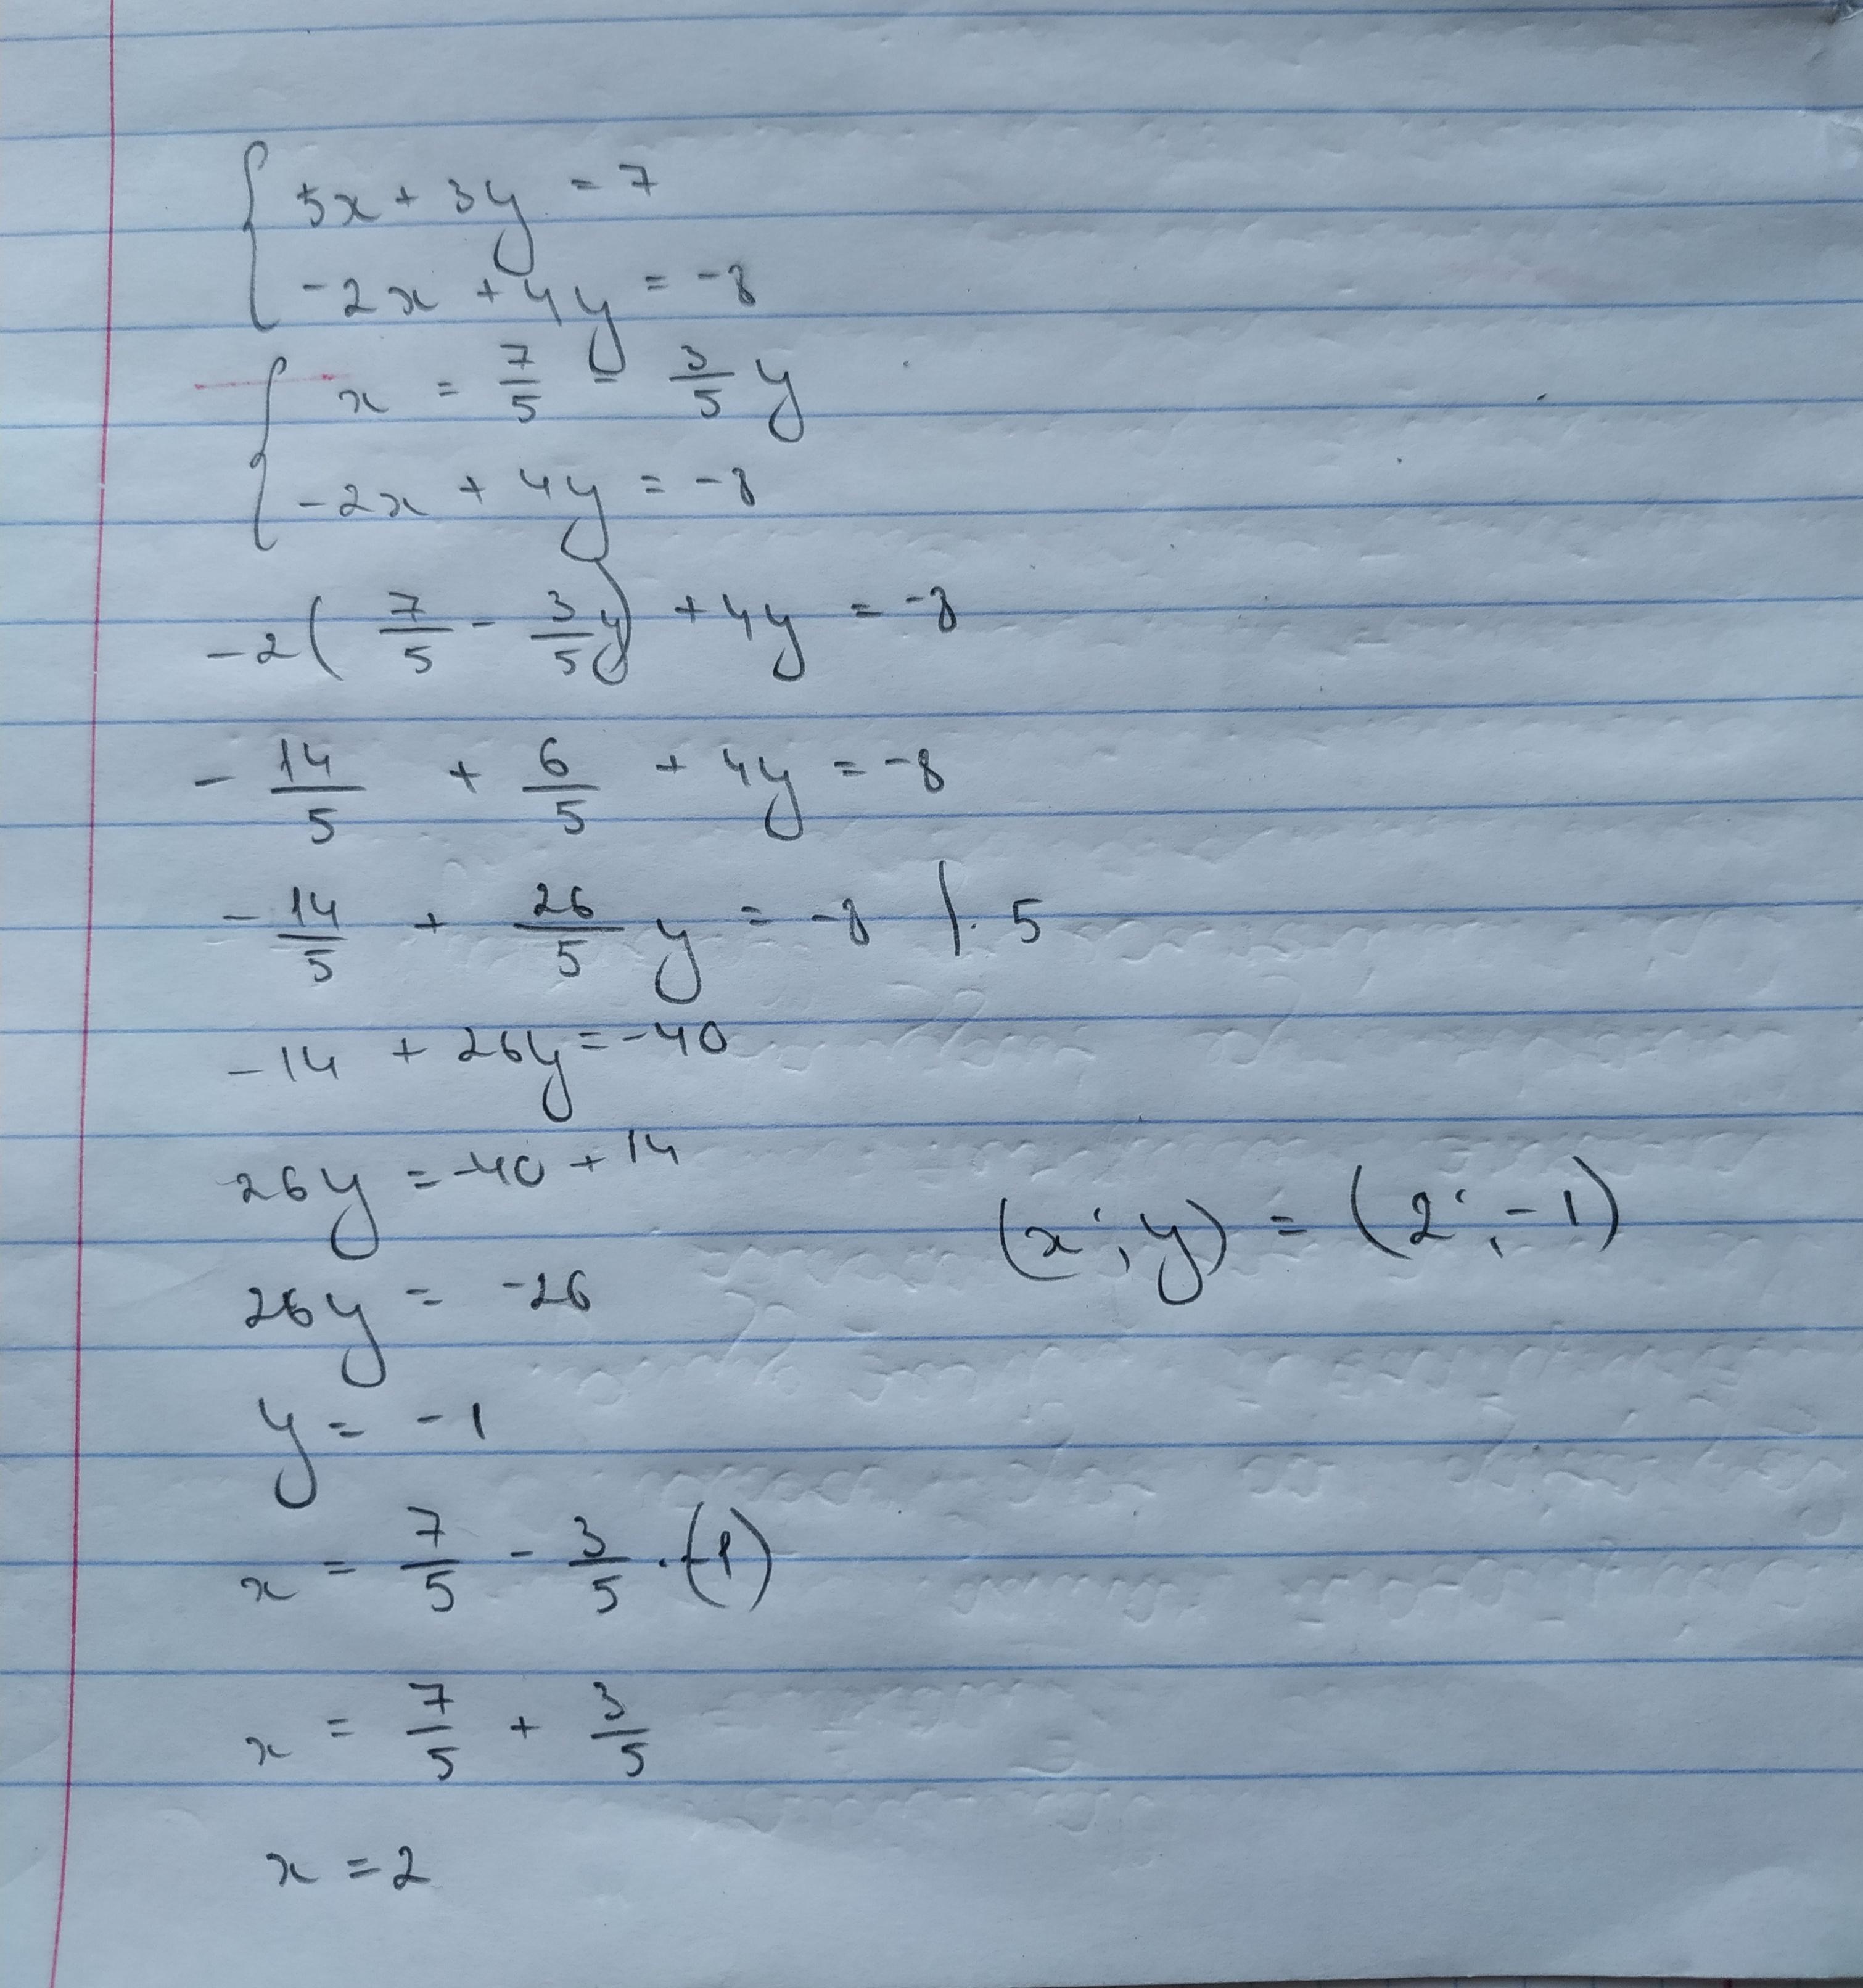 5x + 3y = 7
-2x + 4y = -8
x = 7/5 - 3/5 y
-2x + 4y = -8
-2(7/5 - 3/5 y) + 4y = -8
-14/5 + 6/5 + 4y = -8
-14/5 + 26/5 y = -8 | · 5
-14 + 26y = -40
26y = -40 + 14
(x ; y) = (2 ; -1)
26y = -26
y = -1
x = 7/5 - 3/5 · (-1)
x = 7/5 + 3/5
x = 2